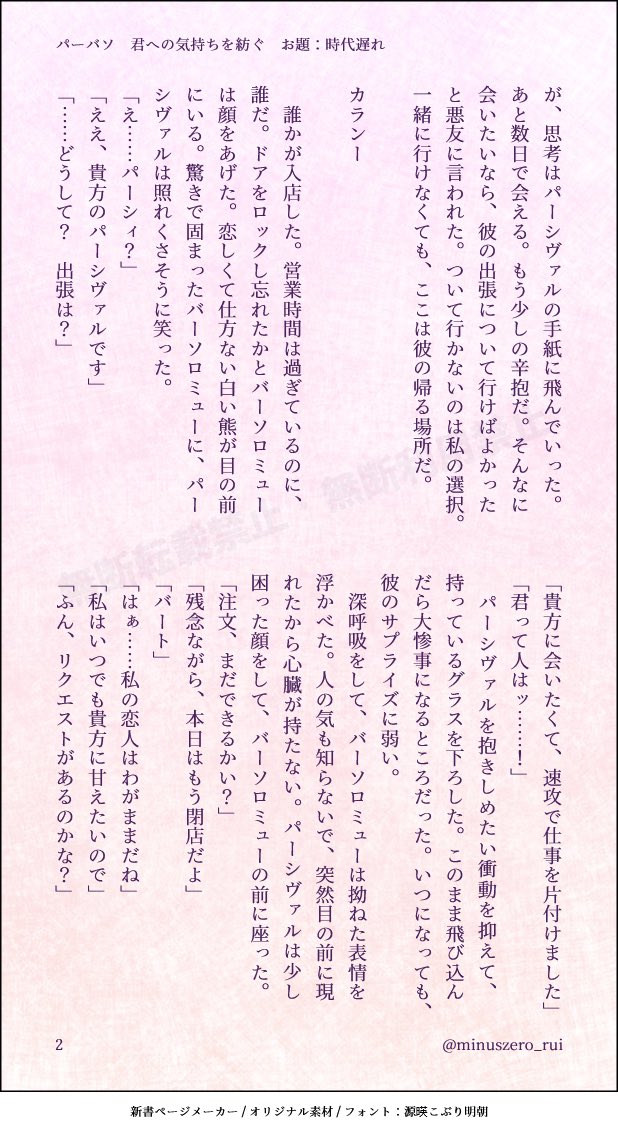 パーバソ　君への気持ちを紡ぐ　お題：時代遅れ
が、思考はパーシヴァルの手紙に飛んでいった。
あと数日で会える。もう少しの辛抱だ。そんなに
会いたいなら、彼の出張について行けばよかった
と悪友に言われた。ついて行かないのは私の選択。
一緒に行けなくても、ここは彼の帰る場所だ。
カランー
　誰かが入店した。営業時間は過ぎているのに、
誰だ。ドアをロックし忘れたかとバーソロミュー
は顔をあげた。恋しくて仕方ない白い熊が目の前
にいる。驚きで固まったバーソロミューに、パー
シヴァルは照れくさそうに笑った。
「え……パーシィ？」
「ええ、貴方のパーシヴァルです」
「……どうして？　出張は？」
「貴方に会いたくて、速攻で仕事を片付けました」
「君って人はッ……！」
　パーシヴァルを抱きしめたい衝動を抑えて、
持っているグラスを下ろした。このまま飛び込ん
だら大惨事になるところだった。いつになっても、
彼のサプライズに弱い。
　深呼吸をして、バーソロミューは拗ねた表情を
浮かべた。人の気も知らないで、突然目の前に現
れたから心臓が持たない。パーシヴァルは少し
困った顔をして、バーソロミューの前に座った。
「注文、まだできるかい？」
「残念ながら、本日はもう閉店だよ」
「バート」
「はぁ……私の恋人はわがままだね」
「私はいつでも貴方に甘えたいので」
「ふん、リクエストがあるのかな？」
無断転載禁止・無断利用禁止
2
@minuszero_rui
新書ページメーカー / オリジナル素材 / フォント：源暎こぶり明朝